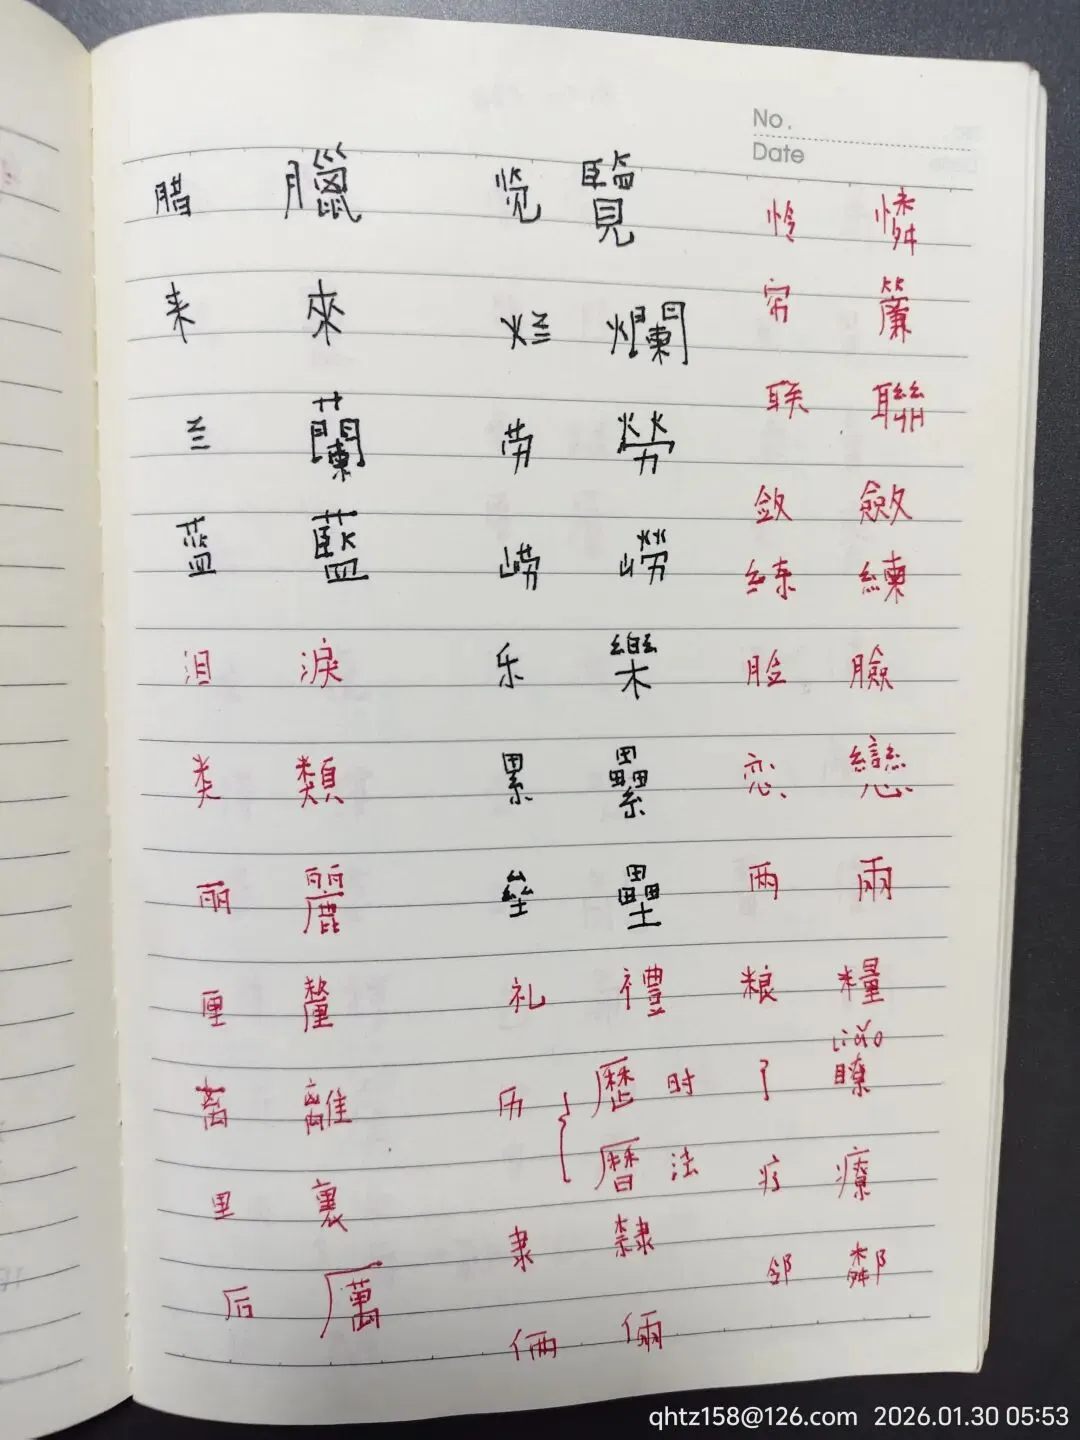 No.
Date
腊 臘
来 來
兰 蘭
蓝 藍
泪 淚
类 類
丽 麗
厘 釐
离 離
里 裏
厉 厲
览 覽
烂 爛
劳 勞
崂 嶗
乐 樂
累 纍
垒 壘
礼 禮
历 { 歷 时
曆 法
隶 隸
俩 倆
怜 憐
帘 簾
联 聯
敛 斂
练 練
脸 臉
恋 戀
两 兩
粮 糧
liǎo
了 瞭
疗 療
邻 鄰
qhtz158@126.com 2026.01.30 05:53